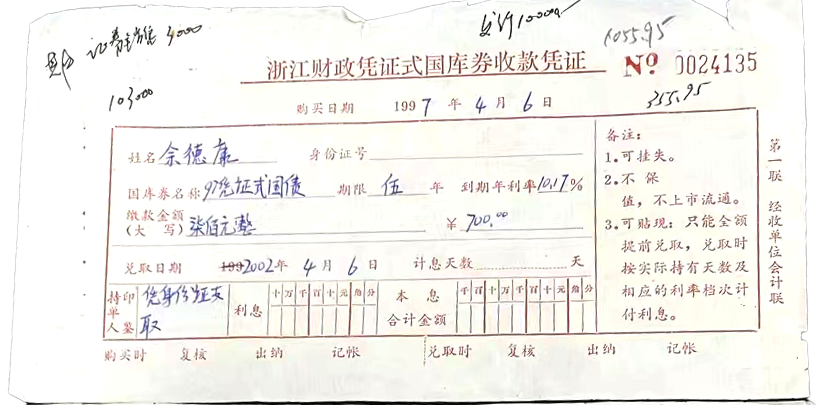 4000
1055.95
103000
355.95
浙江财政凭证式国库券收款凭证 Nº 0024135
购买日期 1997年4月6日
姓名 佘德康 身份证号
国库券名称 97凭证式国债 期限 伍 年 到期年利率10.17%
缴款金额(大写) 柒佰元整 ¥ 700.00
兑取日期 1992002年4月6日 计息天数 天
持单人印鉴 凭身份证支取 利息 十万千百十元角分 本息合计金额 千百十万千百十元角分
购买时 复核 出纳 记帐 兑取时 复核 出纳 记帐
备注:
1.可挂失。
2.不保
值,不上市流通。
3.可贴现:只能全额
提前兑取,兑取时
按实际持有天数及
相应的利率档次计
付利息。
第一联 经收单位会计联